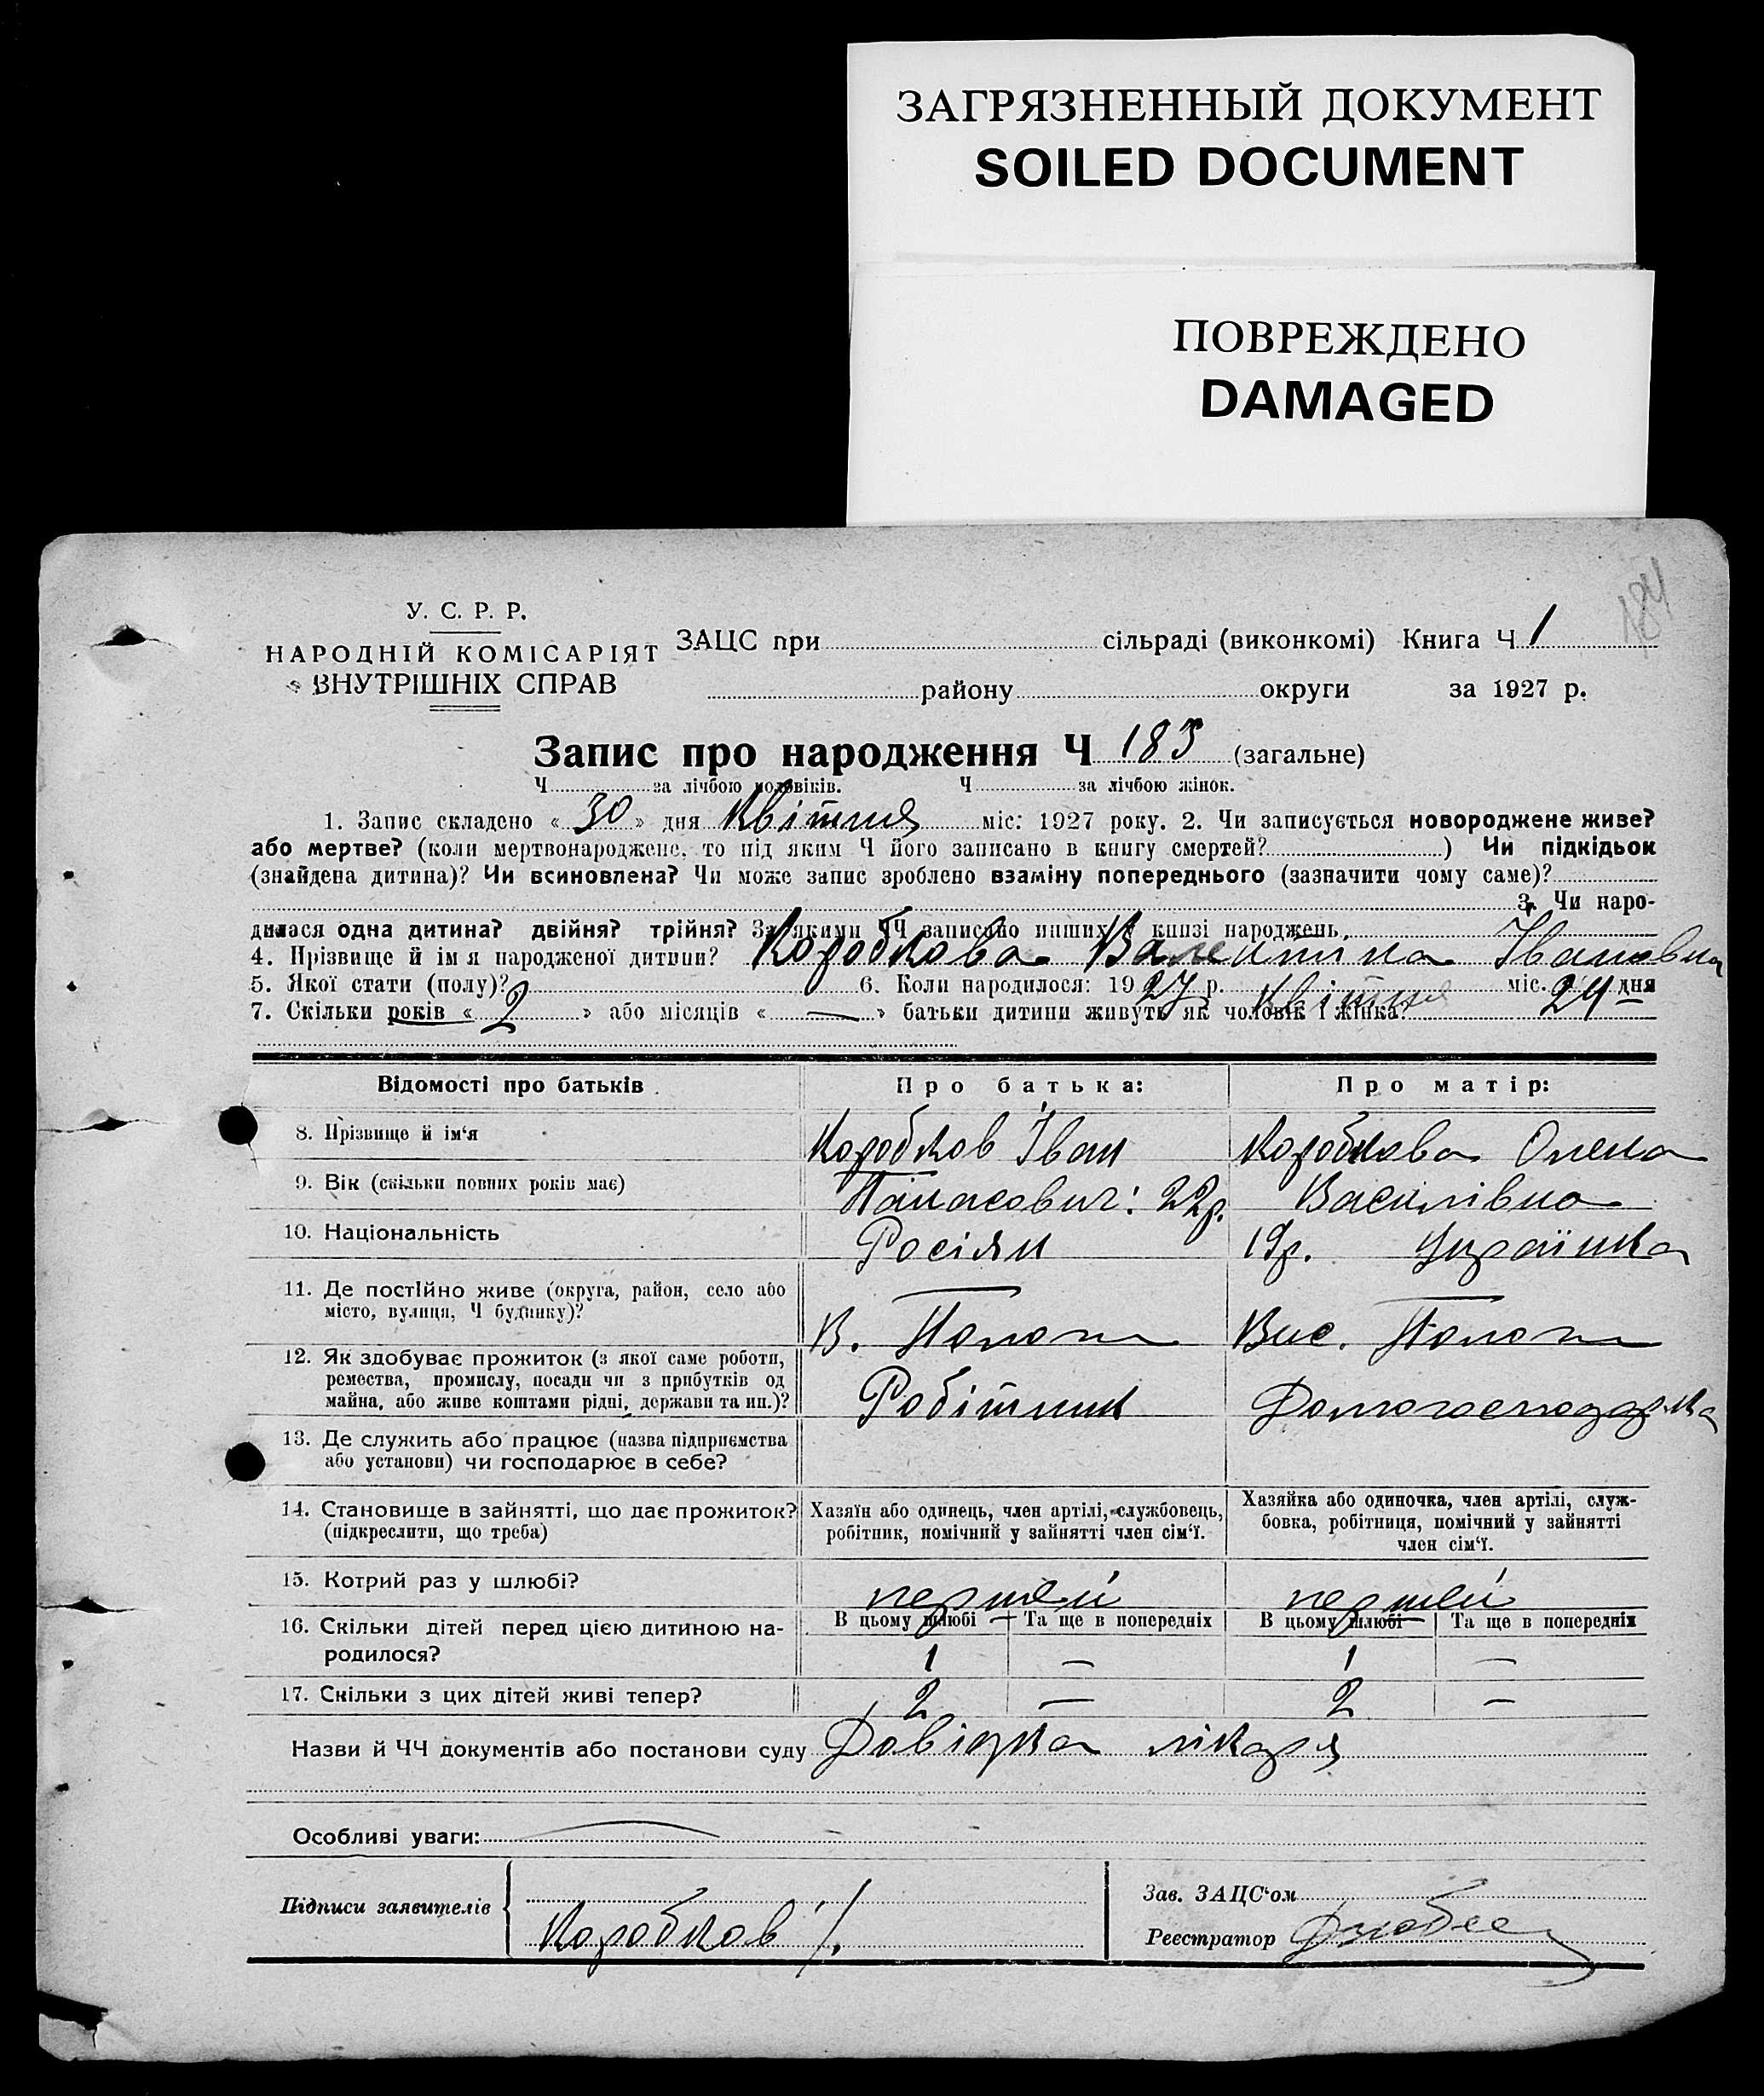 ЗАГРЯЗНЕННЫЙ ДОКУМЕНТ
SOILED DOCUMENT
ПОВРЕЖДЕНО
DAMAGED
184
У. С. Р. Р.
НАРОДНІЙ КОМІСАРІЯТ
ВНУТРІШНІХ СПРАВ
ЗАЦС при сільраді (виконкомі) Книга Ч 1
району округи за 1927 р.
Запис про народження Ч 183 (загальне)
Ч за лічбою чоловіків. Ч за лічбою жінок.
1. Запис складено « 30 » дня Квітня міс: 1927 року. 2. Чи записується новороджене живе?
або мертве? (коли мертвонароджене, то під яким Ч його записано в книгу смертей? ) Чи підкідьок
(знайдена дитина)? Чи всиновлена? Чи може запис зроблено взаміну попереднього (зазначити чому саме)?
3. Чи наро-
дилася одна дитина? двійня? трійня? За якими ЧЧ записано инших у книзі народжень
4. Прізвище й ім я народженої дитини? Коробкова Валентина Івановна
5. Якої стати (полу)? 6. Коли народилося: 1927 р. Квітня міс. 24 дня
7. Скільки років « 2 » або місяців « — » батьки дитини живуть як чоловік і жінка?
Відомості про батьків Про батька: Про матір:
8. Прізвище й ім'я Коробков Іван Коробкова Олена
9. Вік (скільки повних років має) Панасович: 22р. Василівна
10. Національність Росіян 19р. Українка
11. Де постійно живе (округа, район, село або
місто, вулиця, Ч будинку)? В. Пологи Вис. Пологи
12. Як здобуває прожиток (з якої саме роботи,
ремества, промислу, посади чи з прибутків од
майна, або живе коштами рідні, держави та ин.)? Робітник Домогосподарка
13. Де служить або працює (назва підприємства
або установи) чи господарює в себе?
14. Становище в зайнятті, що дає прожиток? Хазяїн або одинець, член артілі, службовець, Хазяйка або одиночка, член артілі, служ-
(підкреслити, що треба) робітник, помічний у зайнятті член сім'ї. бовка, робітниця, помічний у зайнятті
член сім'ї.
15. Котрий раз у шлюбі? першей першей
16. Скільки дітей перед цією дитиною на- В цьому шлюбі Та ще в попередніх В цьому шлюбі Та ще в попередніх
родилося? 1 — 1 —
17. Скільки з цих дітей живі тепер? 2 — 2 —
Назви й ЧЧ документів або постанови суду Довідка лікаря
Особливі уваги:
Підписи заявителів Зав. ЗАЦС'ом
Коробков Реєстратор